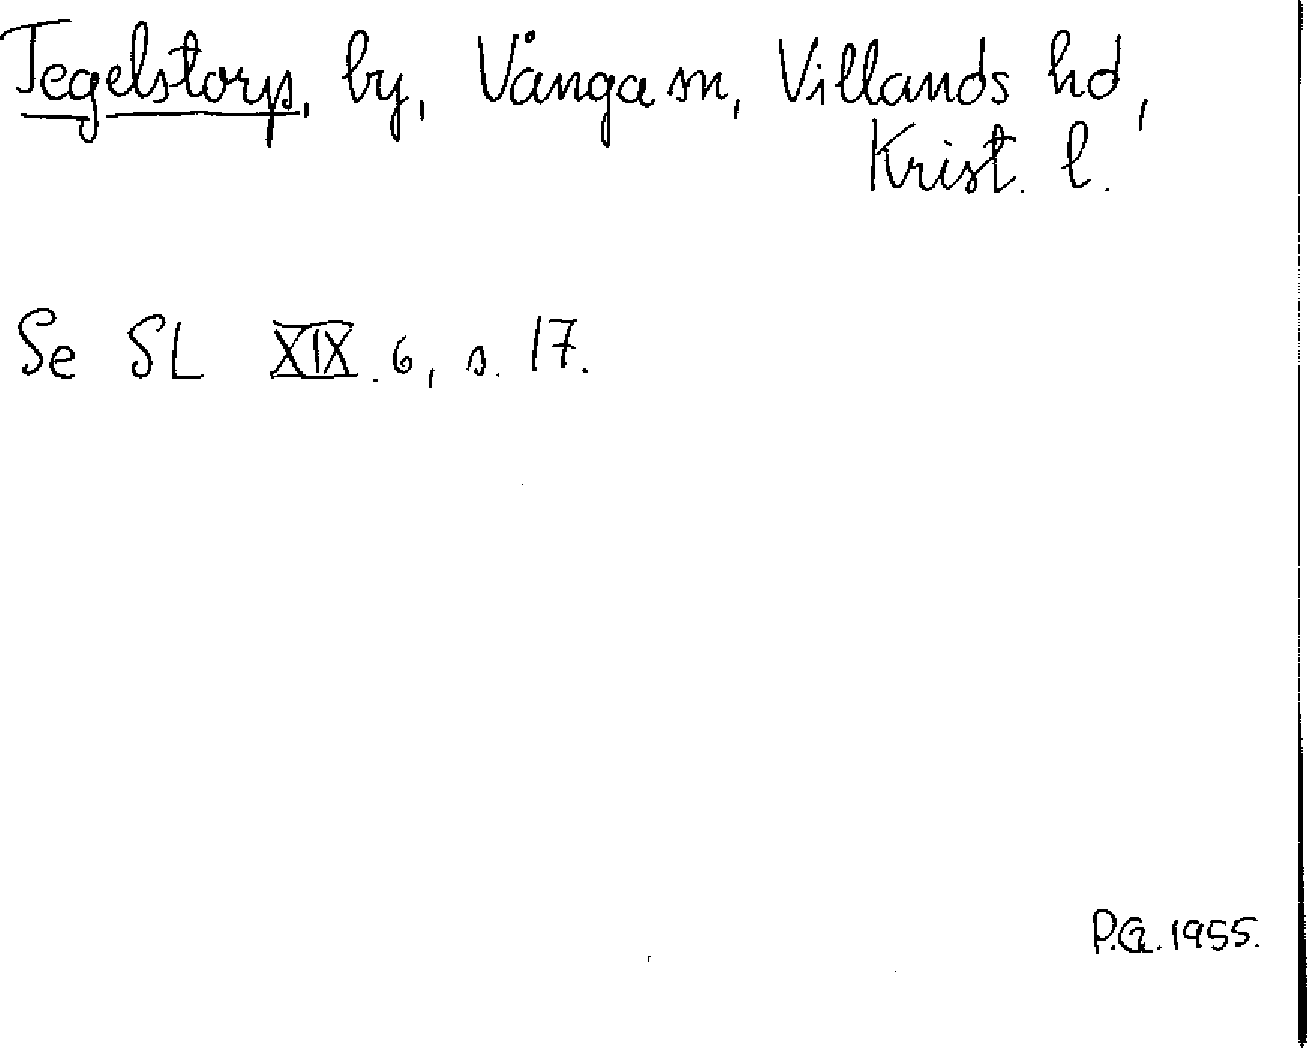 Tegelstorp, by, Vånga sn, Villands hd,
Krist. l.
Se SL XIX.6, s. 17.
P.G. 1955.